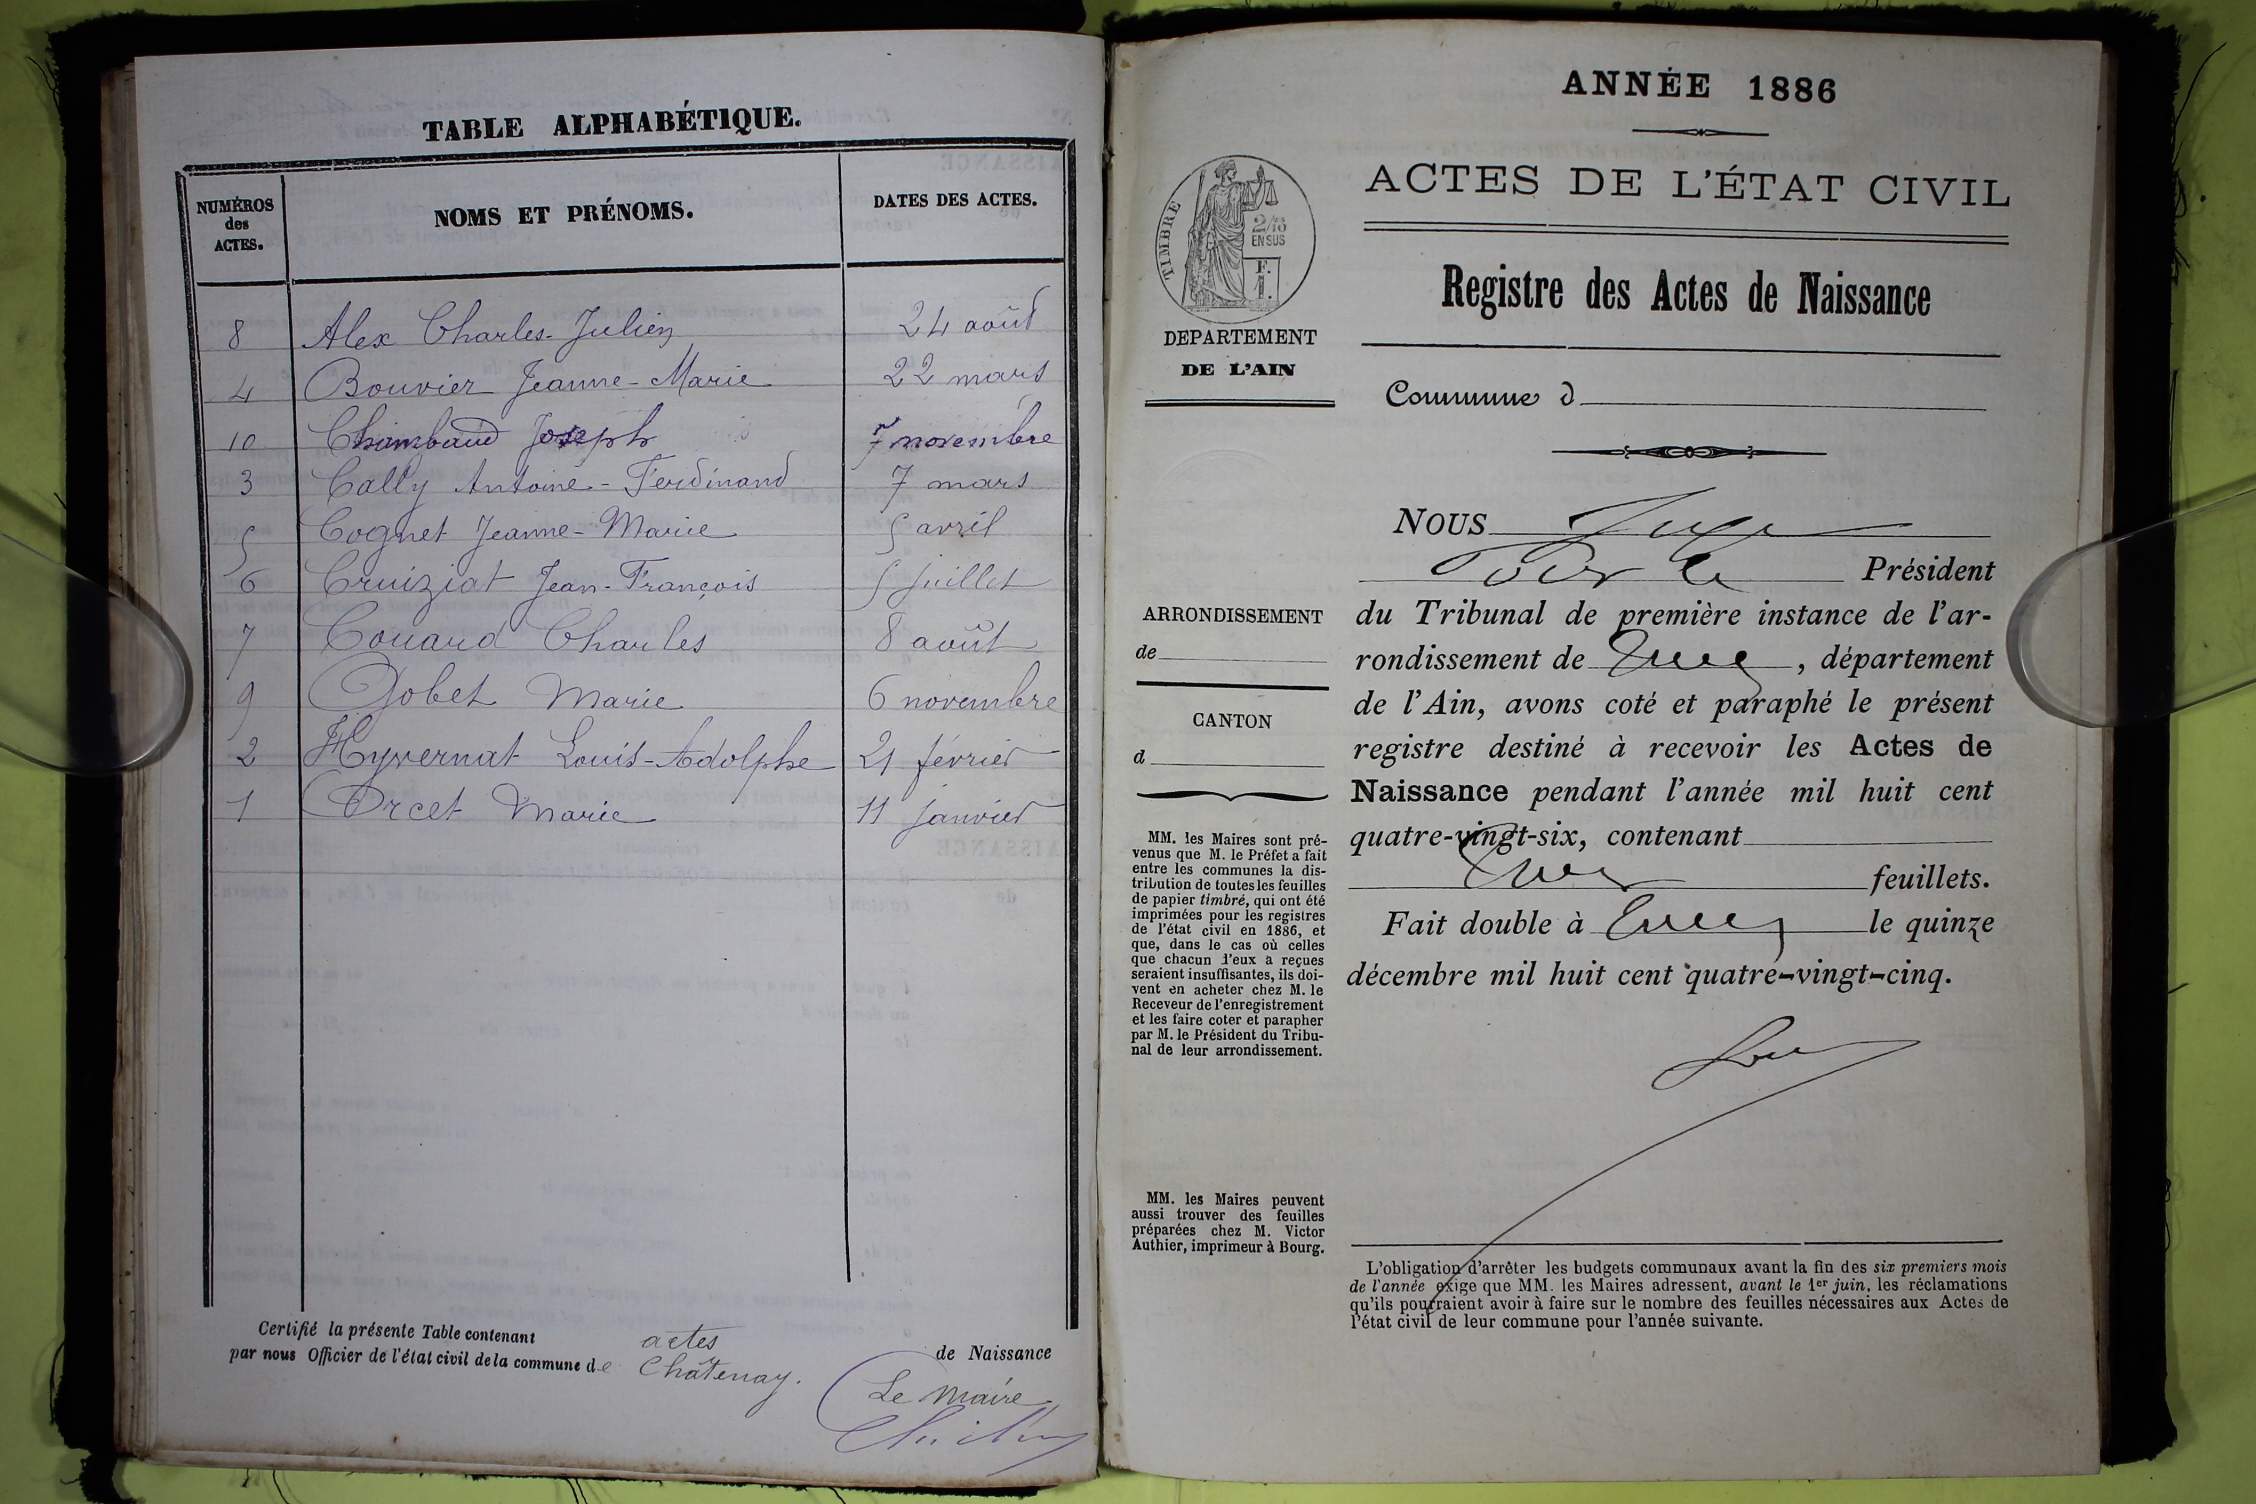 TABLE ALPHABÉTIQUE.
NUMÉROS des ACTES. NOMS ET PRÉNOMS. DATES DES ACTES.
8 Alex Charles-Julien 24 août
4 Bouvier Jeanne-Marie 22 mars
10 Chambaud Joseph 7 novembre
3 Cally Antoine-Ferdinand 7 mars
5 Cognet Jeanne-Marie 5 avril
6 Cruiziat Jean-François 5 juillet
7 Couard Charles 8 août
9 Gobet Marie 6 novembre
2 Hyvernat Louis-Adolphe 21 février
1 Orcet Marie 11 janvier
Certifié la présente Table contenant actes de Naissance
par nous Officier de l'état civil de la commune de Châtenay.
Le Maire
ANNÉE 1886
ACTES DE L'ÉTAT CIVIL
TIMBRE
2/10
EN SUS
F.
1.
DEPARTEMENT
DE L'AIN
Registre des Actes de Naissance
Commune d
NOUS Juge
Pour le Président
du Tribunal de première instance de l'ar-
rondissement de , département
de l'Ain, avons coté et paraphé le présent
registre destiné à recevoir les Actes de
Naissance pendant l'année mil huit cent
quatre-vingt-six, contenant
feuillets.
Fait double à le quinze
décembre mil huit cent quatre-vingt-cinq.
ARRONDISSEMENT
de
CANTON
d
MM. les Maires sont pré-
venus que M. le Préfet a fait
entre les communes la dis-
tribution de toutes les feuilles
de papier timbré, qui ont été
imprimées pour les registres
de l'état civil en 1886, et
que, dans le cas où celles
que chacun d'eux a reçues
seraient insuffisantes, ils doi-
vent en acheter chez M. le
Receveur de l'enregistrement
et les faire coter et parapher
par M. le Président du Tribu-
nal de leur arrondissement.
MM. les Maires peuvent
aussi trouver des feuilles
préparées chez M. Victor
Authier, imprimeur à Bourg.
L'obligation d'arrêter les budgets communaux avant la fin des six premiers mois
de l'année exige que MM. les Maires adressent, avant le 1er juin, les réclamations
qu'ils pourraient avoir à faire sur le nombre des feuilles nécessaires aux Actes de
l'état civil de leur commune pour l'année suivante.